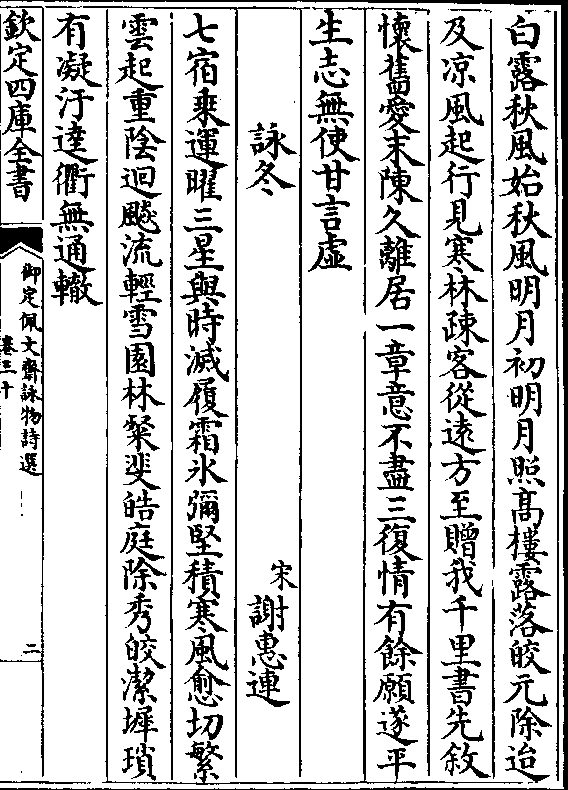 白露秋風始秋風明月初明月照高樓露落皎元除迨
及凉風起行見寒林疎客從遠方至贈我千里書先敘
懷舊愛末陳久離居一章意不盡三復情有餘願遂平
生志無使甘言虛
詠冬　宋謝惠連
七宿乘運曜三星與時滅履霜氷彌堅積寒風愈切繁
雲起重陰迴飈流輕雪園林粲斐皓庭除秀皎潔墀瑣
有凝汙逵衢無通轍
欽定四庫全書
御定佩文齋詠物詩選
卷三十
二